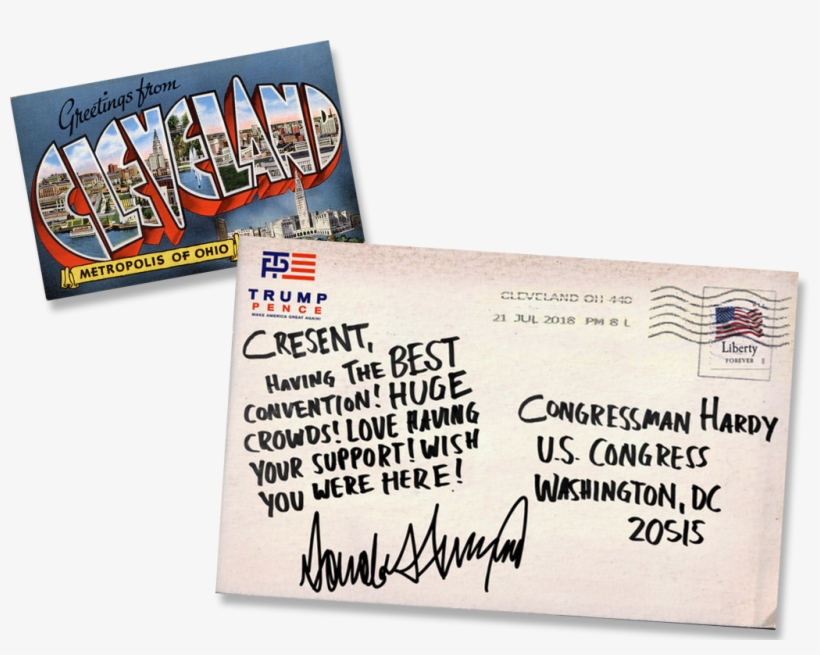 Greetings from
CLEVELAND
METROPOLIS OF OHIO
TP
TRUMP
PENCE
MAKE AMERICA GREAT AGAIN!
CRESENT,
HAVING THE BEST
CONVENTION! HUGE
CROWDS! LOVE HAVING
YOUR SUPPORT! WISH
YOU WERE HERE!
Donald Trump
CLEVELAND OH 440
21 JUL 2016 PM 8 L
Liberty
FOREVER
CONGRESSMAN HARDY
U.S. CONGRESS
WASHINGTON, DC
20515